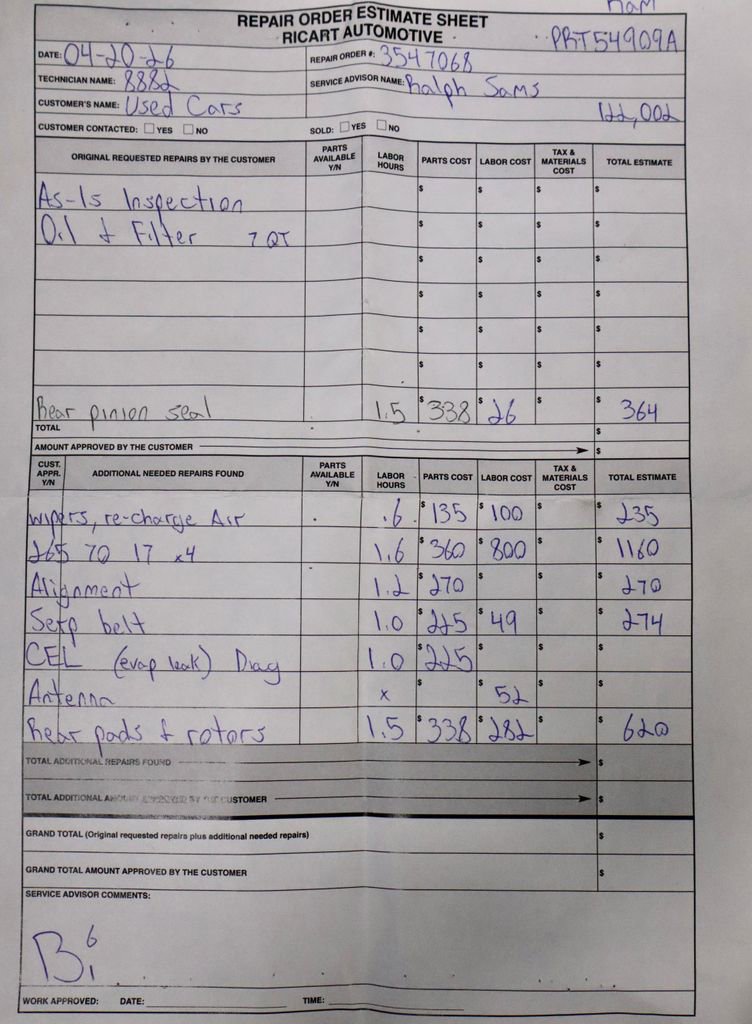 Ram
REPAIR ORDER ESTIMATE SHEET
RICART AUTOMOTIVE
PRT54909A
DATE: 04-20-26
REPAIR ORDER #: 3547068
TECHNICIAN NAME: 8882
SERVICE ADVISOR NAME: Ralph Sams
CUSTOMER'S NAME: Used Cars
122,002
CUSTOMER CONTACTED: YES NO SOLD: YES NO
ORIGINAL REQUESTED REPAIRS BY THE CUSTOMER PARTS AVAILABLE Y/N LABOR HOURS PARTS COST LABOR COST TAX & MATERIALS COST TOTAL ESTIMATE
As-Is Inspection $ $ $ $
Oil & Filter 7 QT $ $ $ $
$ $ $ $
$ $ $ $
$ $ $ $
$ $ $ $
Rear pinion seal 1.5 $338 $26 $ $364
TOTAL $
AMOUNT APPROVED BY THE CUSTOMER $
CUST. APPR. Y/N ADDITIONAL NEEDED REPAIRS FOUND PARTS AVAILABLE Y/N LABOR HOURS PARTS COST LABOR COST TAX & MATERIALS COST TOTAL ESTIMATE
wipers, re-charge Air .6 $135 $100 $ $235
265 70 17 x4 1.6 $360 $800 $ $1160
Alignment 1.2 $270 $ $ $270
Serp belt 1.0 $225 $49 $ $274
CEL (evap leak) Diag 1.0 $225 $ $ $
Antenna x $ $52 $ $
Rear pads & rotors 1.5 $338 $282 $ $620
TOTAL ADDITIONAL REPAIRS FOUND $
TOTAL ADDITIONAL AMOUNT APPROVED BY THE CUSTOMER $
GRAND TOTAL (Original requested repairs plus additional needed repairs) $
GRAND TOTAL AMOUNT APPROVED BY THE CUSTOMER $
SERVICE ADVISOR COMMENTS:
WORK APPROVED: DATE: TIME: